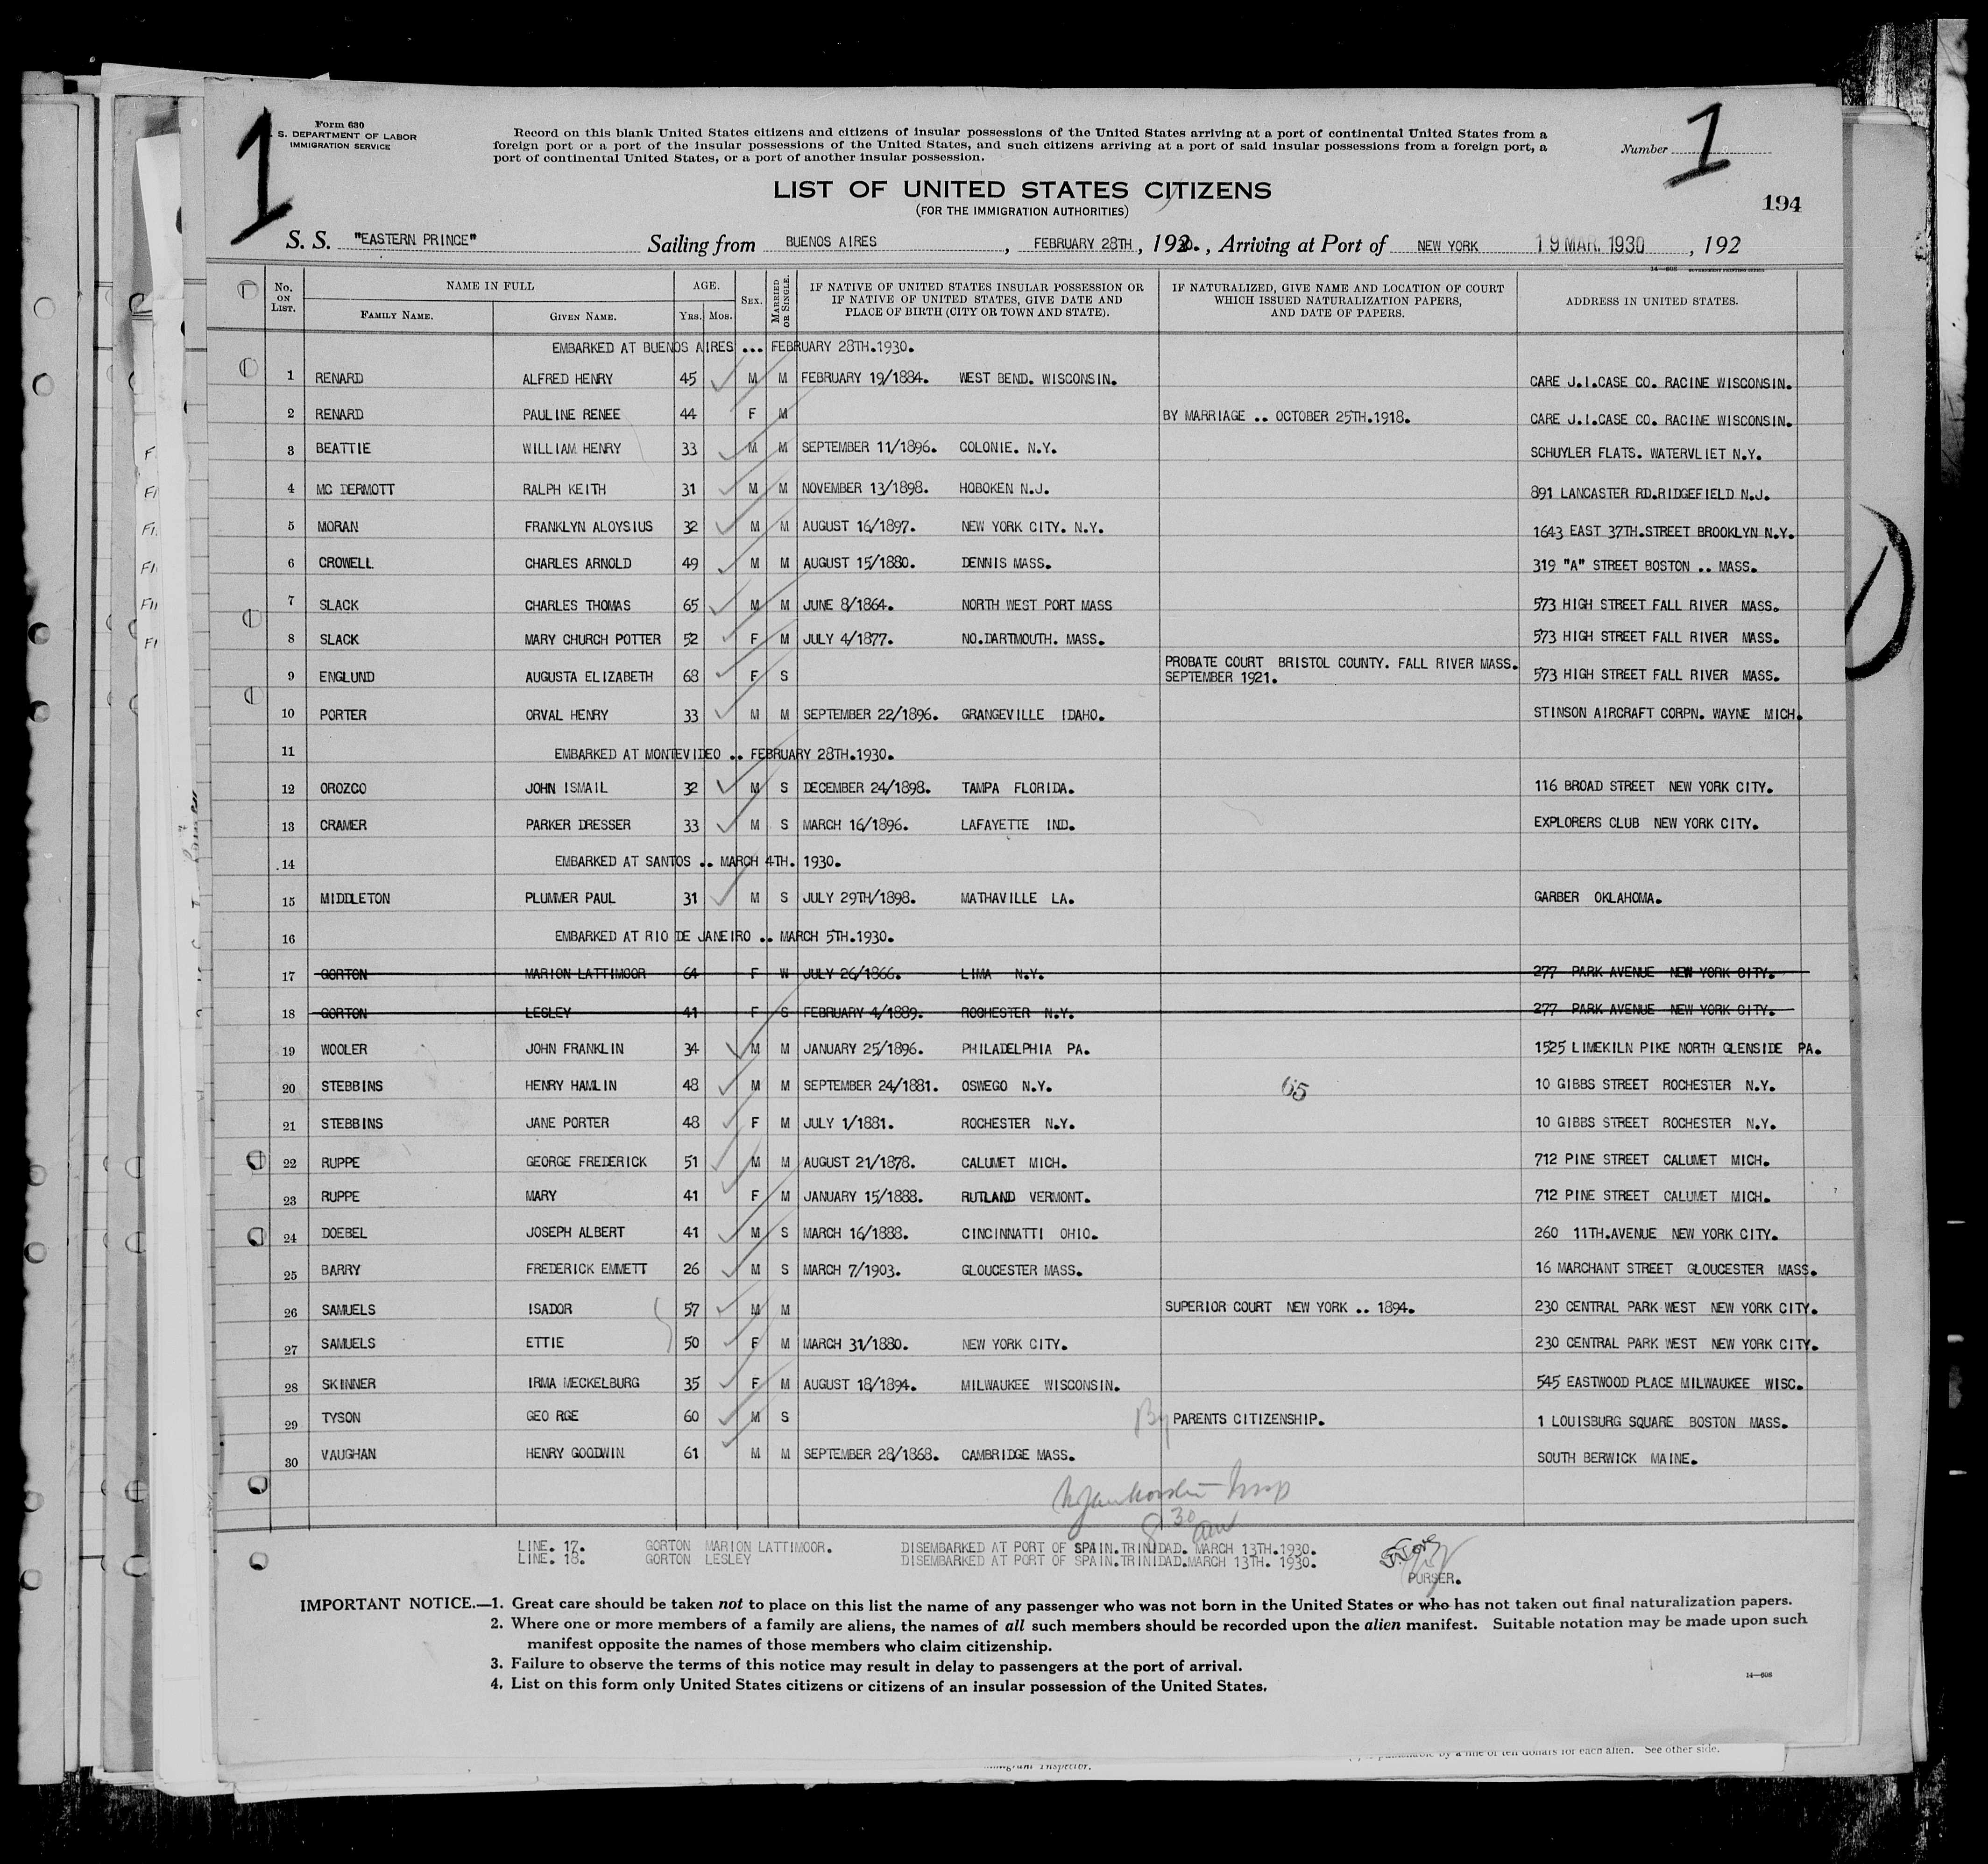 1
Form 630
S. DEPARTMENT OF LABOR
IMMIGRATION SERVICE
Record on this blank United States citizens and citizens of insular possessions of the United States arriving at a port of continental United States from a
foreign port or a port of the insular possessions of the United States, and such citizens arriving at a port of said insular possessions from a foreign port, a
port of continental United States, or a port of another insular possession.
Number 1
LIST OF UNITED STATES CITIZENS
(FOR THE IMMIGRATION AUTHORITIES)
194
S. S. "EASTERN PRINCE" Sailing from BUENOS AIRES, FEBRUARY 28TH, 1930., Arriving at Port of NEW YORK 19 MAR. 1930, 192
14—608 GOVERNMENT PRINTING OFFICE
No. ON LIST. NAME IN FULL AGE. SEX. MARRIED OR SINGLE. IF NATIVE OF UNITED STATES INSULAR POSSESSION OR IF NATIVE OF UNITED STATES, GIVE DATE AND PLACE OF BIRTH (CITY OR TOWN AND STATE). IF NATURALIZED, GIVE NAME AND LOCATION OF COURT WHICH ISSUED NATURALIZATION PAPERS, AND DATE OF PAPERS. ADDRESS IN UNITED STATES.
FAMILY NAME. GIVEN NAME. YRS. MOS.
EMBARKED AT BUENOS AIRES ... FEBRUARY 28TH.1930.
1 RENARD ALFRED HENRY 45 M M FEBRUARY 19/1884. WEST BEND. WISCONSIN. CARE J.I.CASE CO. RACINE WISCONSIN.
2 RENARD PAULINE RENEE 44 F M BY MARRIAGE .. OCTOBER 25TH.1918. CARE J.I.CASE CO. RACINE WISCONSIN.
3 BEATTIE WILLIAM HENRY 33 M M SEPTEMBER 11/1896. COLONIE. N.Y. SCHUYLER FLATS. WATERVLIET N.Y.
4 MC DERMOTT RALPH KEITH 31 M M NOVEMBER 13/1898. HOBOKEN N.J. 891 LANCASTER RD.RIDGEFIELD N.J.
5 MORAN FRANKLYN ALOYSIUS 32 M M AUGUST 16/1897. NEW YORK CITY. N.Y. 1643 EAST 37TH.STREET BROOKLYN N.Y.
6 CROWELL CHARLES ARNOLD 49 M M AUGUST 15/1880. DENNIS MASS. 319 "A" STREET BOSTON .. MASS.
7 SLACK CHARLES THOMAS 65 M M JUNE 8/1864. NORTH WEST PORT MASS 573 HIGH STREET FALL RIVER MASS.
8 SLACK MARY CHURCH POTTER 52 F M JULY 4/1877. NO.DARTMOUTH. MASS. 573 HIGH STREET FALL RIVER MASS.
9 ENGLUND AUGUSTA ELIZABETH 68 F S PROBATE COURT BRISTOL COUNTY. FALL RIVER MASS. SEPTEMBER 1921. 573 HIGH STREET FALL RIVER MASS.
10 PORTER ORVAL HENRY 33 M M SEPTEMBER 22/1896. GRANGEVILLE IDAHO. STINSON AIRCRAFT CORPN. WAYNE MICH.
11 EMBARKED AT MONTEVIDEO .. FEBRUARY 28TH.1930.
12 OROZCO JOHN ISMAIL 32 M S DECEMBER 24/1898. TAMPA FLORIDA. 116 BROAD STREET NEW YORK CITY.
13 CRAMER PARKER DRESSER 33 M S MARCH 16/1896. LAFAYETTE IND. EXPLORERS CLUB NEW YORK CITY.
14 EMBARKED AT SANTOS .. MARCH 4TH. 1930.
15 MIDDLETON PLUMMER PAUL 31 M S JULY 29TH/1898. MATHAVILLE LA. GARBER OKLAHOMA.
16 EMBARKED AT RIO DE JANEIRO .. MARCH 5TH.1930.
17 GORTON MARION LATTIMOOR 64 F W JULY 26/1866. LIMA N.Y. 277 PARK AVENUE NEW YORK CITY.
18 GORTON LESLEY 41 F S FEBRUARY 4/1889. ROCHESTER N.Y. 277 PARK AVENUE NEW YORK CITY.
19 WOOLER JOHN FRANKLIN 34 M M JANUARY 25/1896. PHILADELPHIA PA. 1525 LIMEKILN PIKE NORTH GLENSIDE PA.
20 STEBBINS HENRY HAMLIN 48 M M SEPTEMBER 24/1881. OSWEGO N.Y. 65 10 GIBBS STREET ROCHESTER N.Y.
21 STEBBINS JANE PORTER 48 F M JULY 1/1881. ROCHESTER N.Y. 10 GIBBS STREET ROCHESTER N.Y.
22 RUPPE GEORGE FREDERICK 51 M M AUGUST 21/1878. CALUMET MICH. 712 PINE STREET CALUMET MICH.
23 RUPPE MARY 41 F M JANUARY 15/1888. RUTLAND VERMONT. 712 PINE STREET CALUMET MICH.
24 DOEBEL JOSEPH ALBERT 41 M S MARCH 16/1888. CINCINNATTI OHIO. 260 11TH.AVENUE NEW YORK CITY.
25 BARRY FREDERICK EMMETT 26 M S MARCH 7/1903. GLOUCESTER MASS. 16 MARCHANT STREET GLOUCESTER MASS.
26 SAMUELS ISADOR 57 M M SUPERIOR COURT NEW YORK .. 1894. 230 CENTRAL PARK WEST NEW YORK CITY.
27 SAMUELS ETTIE 50 F M MARCH 31/1880. NEW YORK CITY. 230 CENTRAL PARK WEST NEW YORK CITY.
28 SKINNER IRMA MECKELBURG 35 F M AUGUST 18/1894. MILWAUKEE WISCONSIN. 545 EASTWOOD PLACE MILWAUKEE WISC.
29 TYSON GEO RGE 60 M S By PARENTS CITIZENSHIP. 1 LOUISBURG SQUARE BOSTON MASS.
30 VAUGHAN HENRY GOODWIN 61 M M SEPTEMBER 28/1868. CAMBRIDGE MASS. SOUTH BERWICK MAINE.
8 30 am
LINE. 17. GORTON MARION LATTIMOOR. DISEMBARKED AT PORT OF SPAIN.TRINIDAD. MARCH 13TH.1930.
LINE. 18. GORTON LESLEY DISEMBARKED AT PORT OF SPAIN.TRINIDAD.MARCH 13TH. 1930.
PURSER.
IMPORTANT NOTICE.—1. Great care should be taken not to place on this list the name of any passenger who was not born in the United States or who has not taken out final naturalization papers.
2. Where one or more members of a family are aliens, the names of all such members should be recorded upon the alien manifest. Suitable notation may be made upon such
manifest opposite the names of those members who claim citizenship.
3. Failure to observe the terms of this notice may result in delay to passengers at the port of arrival.
4. List on this form only United States citizens or citizens of an insular possession of the United States.
14—608
by a fine of ten dollars for each alien. See other side.
Immigrant Inspector.